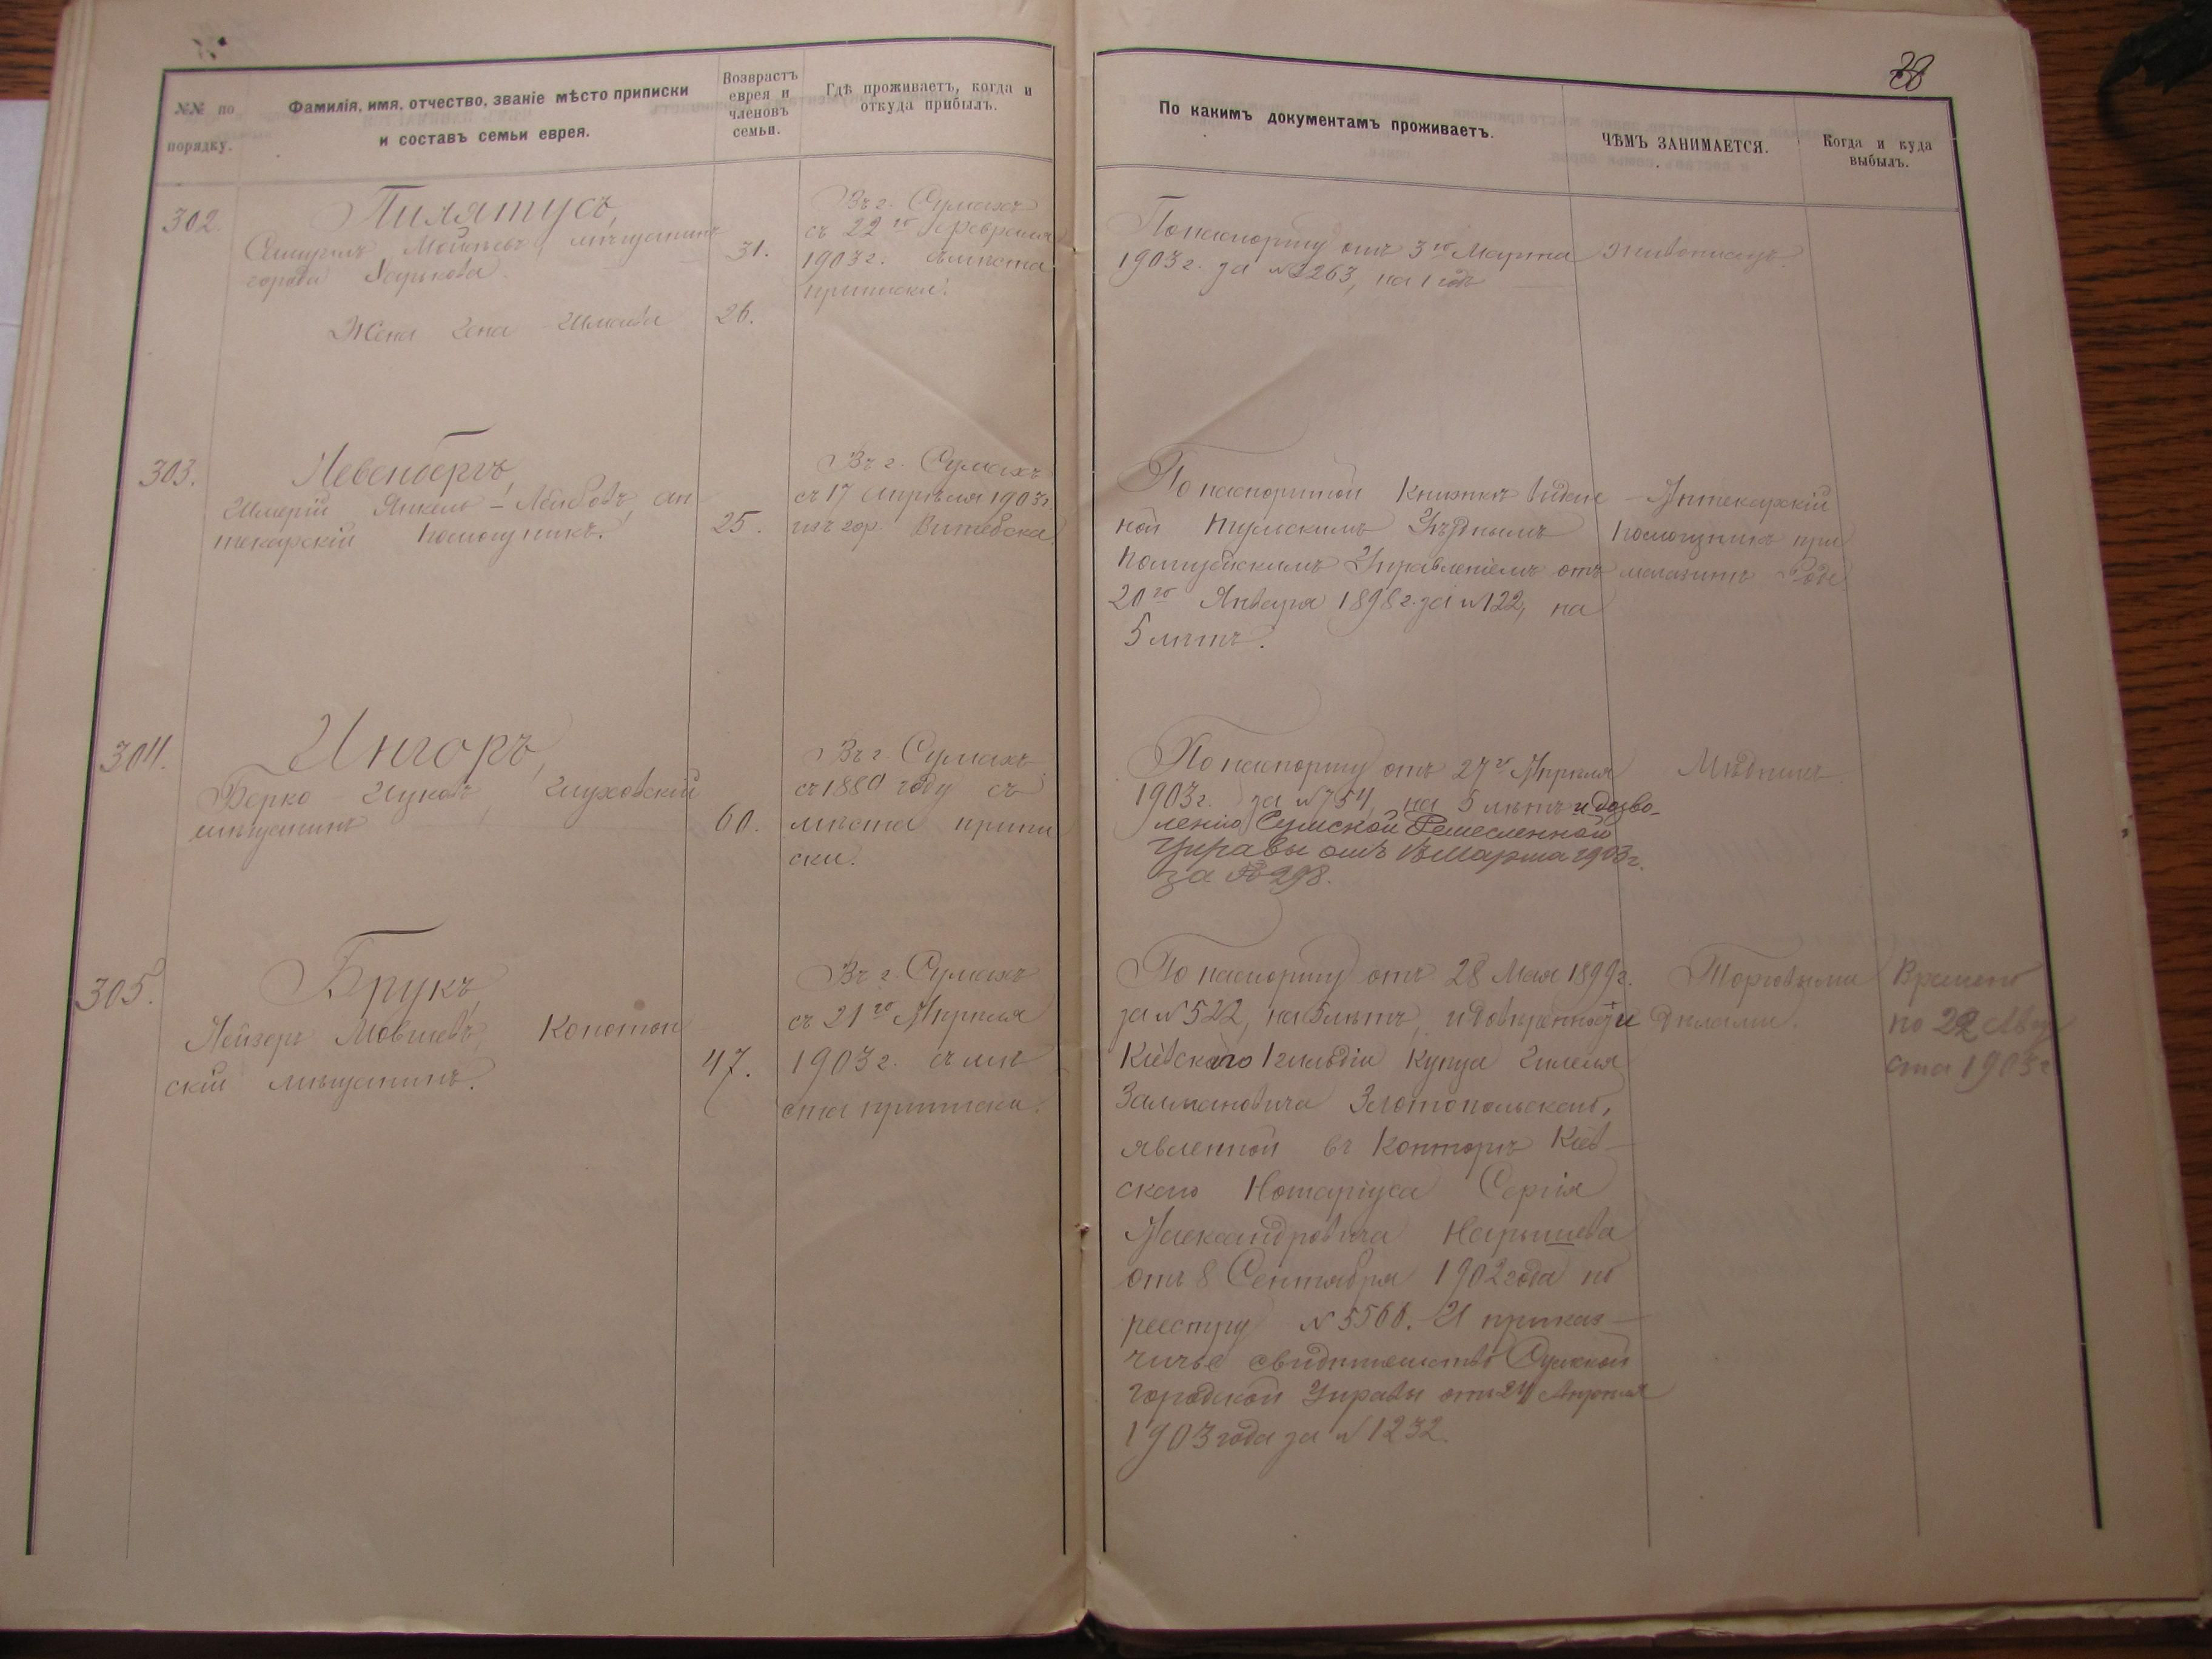 №№ по порядку.
Фамилія, имя, отчество, званіе мѣсто приписки
и составъ семьи еврея.
Возврастъ
еврея и
членовъ
семьи.
Гдѣ проживаетъ, когда и
откуда прибылъ.
302.
Пилятусъ,
Самуилъ Мойсеевъ, мѣщанинъ
города Харькова.
31.
Жена Хана
26.
Въ г. Сумахъ
съ 22го Февраля
1903 г. съ мѣста
приписки.
303.
Левенбергъ,
Янкель-Лейбовъ, ап
текарскій помощникъ.
25.
Въ г. Сумахъ
съ 17 Апрѣля 1903 г.
изъ гор. Витебска
304.
Ингоръ,
Берко Ицковъ, глуховскій
мѣщанинъ
60.
Въ г. Сумахъ
съ 1880 году съ
мѣста припи
ски.
305.
Брукъ,
Лейзеръ Мовшевъ, Конотоп
скій мѣщанинъ.
47.
Въ г. Сумахъ
съ 21го Апрѣля
1903 г. съ мѣ
ста приписки.
По какимъ документамъ проживаетъ.
ЧѢМЪ ЗАНИМАЕТСЯ.
Когда и куда
выбылъ.
По паспорту отъ 3го Марта
1903 г. за № 263, на 1 годъ
Живописецъ
По паспортной книжкѣ выдан
ной Уѣзднымъ
Полицейскимъ Управленіемъ отъ
20го Января 1898 г. за № 122, на
5 лѣтъ.
Аптекарскій
помощникъ при
магазинѣ
По паспорту отъ 27го Апрѣля
1903 г. за № 754, на 5 лѣтъ и дозво-
ленію Сумской Ремесленной
Управы отъ 13 Марта 1903 г.
за № 298.
Мѣдникъ.
По паспорту отъ 28 Мая 1899 г.
за № 522, на 5 лѣтъ, и довѣренности
Кіевскаго 1 гильдіи купца Гилеля
Залмановича Золотопольскаго,
явленной въ Конторѣ Кіев-
скаго Нотаріуса Сергія
Александровича
отъ 8 Сентября 1902 года по
реестру № 5566. И приказ-
чичье свидѣтельство Сумской
Городской Управы отъ 24 Апрѣля
1903 года за № 1232.
Торговыми
дѣлами.
Времено
по 22 Авгу
ста 1903 г